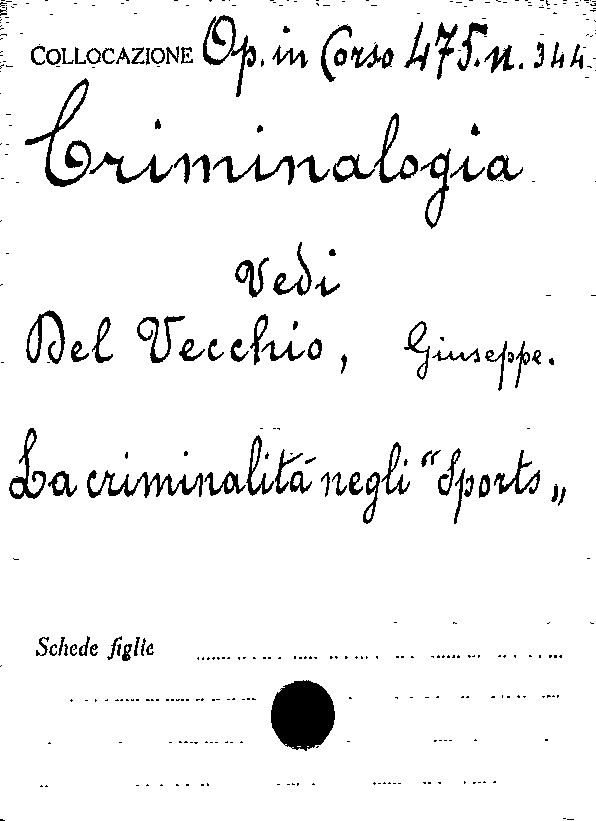 COLLOCAZIONE Op. in Corso 475. n. 344
Criminalogia
Vedi
Del Vecchio, Giuseppe.
La criminalità negli "Sports„
Schede figlie